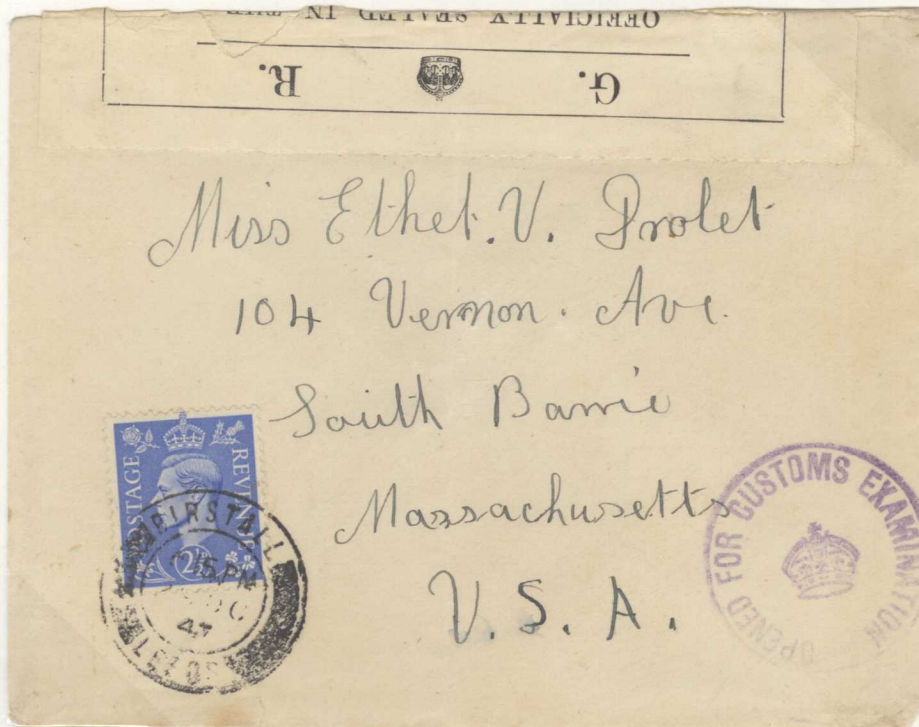 OFFICIALLY SEALED IN THE
G. R.
Miss Ethel. V. Drolet
104 Vernon. Ave.
South Barrie
Massachusetts
U. S. A.
POSTAGE REVENUE
2½
BIRSTALL
15 PM
OPENED FOR CUSTOMS EXAMINATION